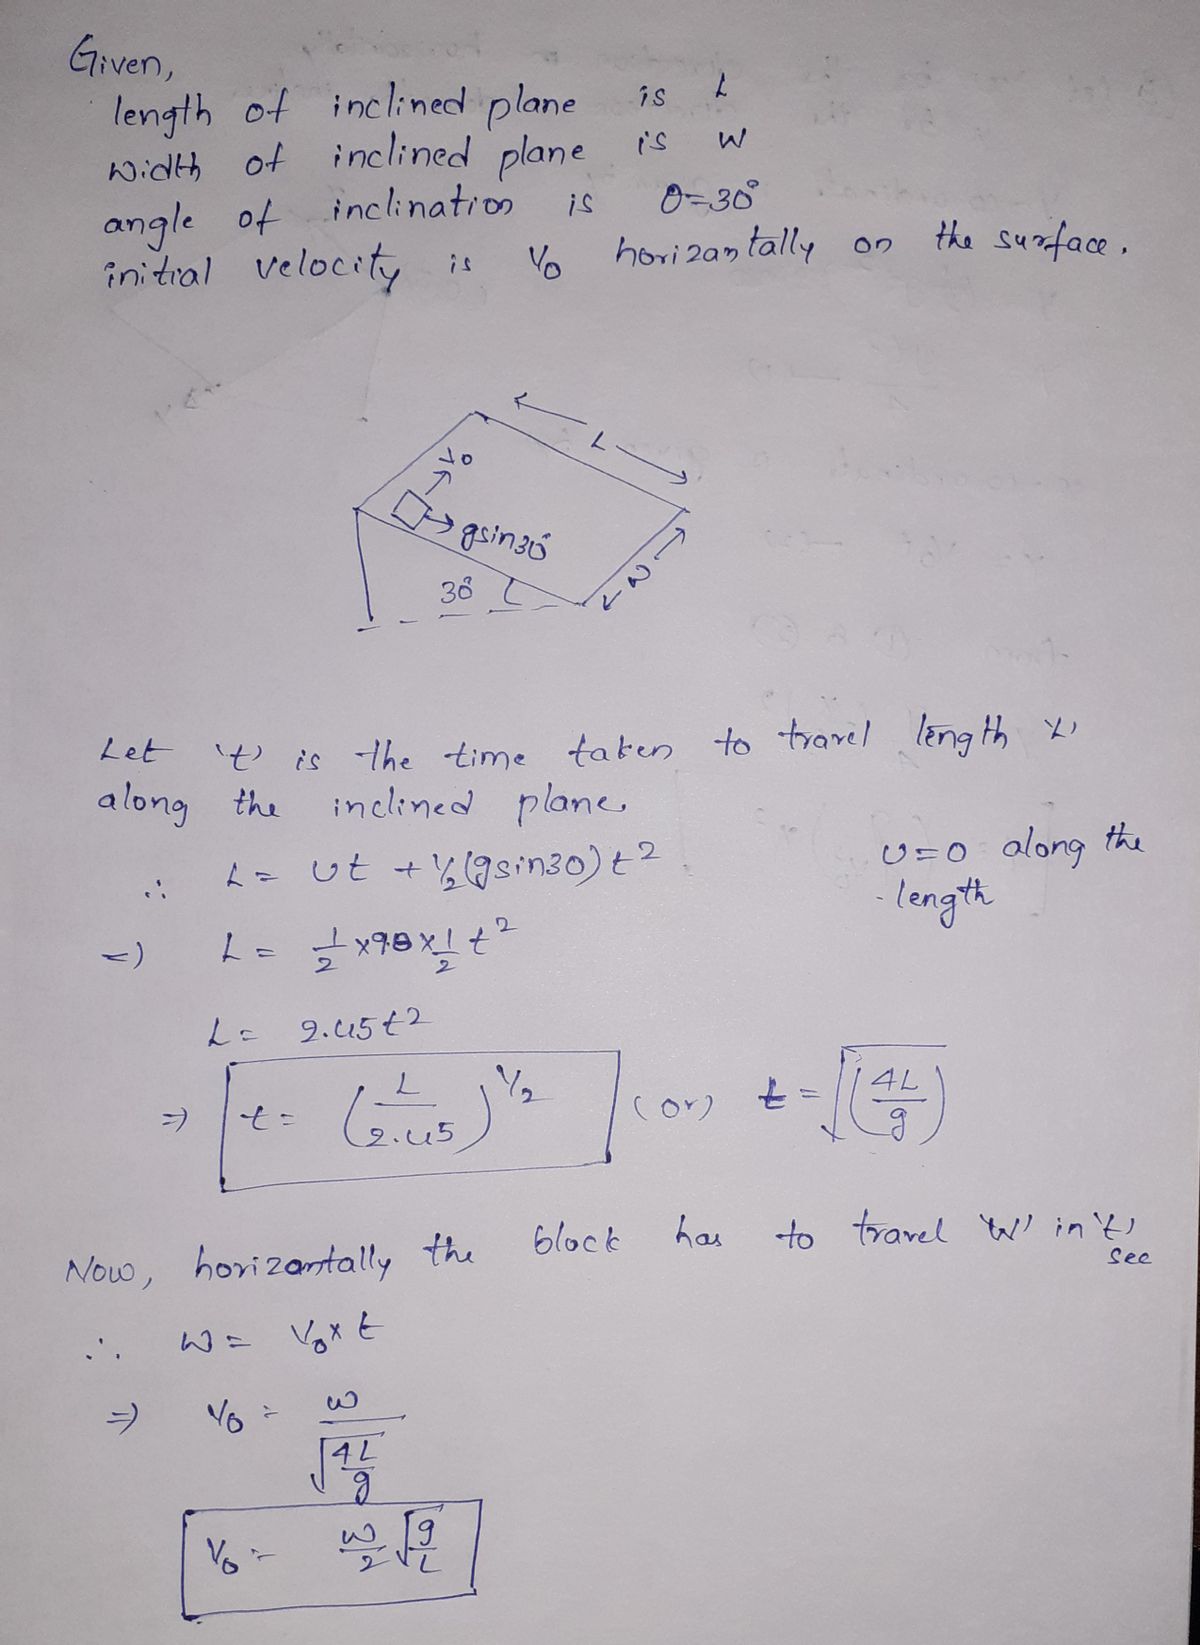 Given,
length of inclined plane is L
width of inclined plane is W
angle of inclination is θ=30°
initial velocity is V₀ horizantally on the surface.
L
V₀
gsin30°
30°
W
Let 't' is the time taken to travel length 'L'
along the inclined plane.
∴ L = Ut + ½(gsin30)t²
U=0 along the
length
=) L = 1/2 × 9.8 × 1/2 t²
L = 2.45t²
⇒ t = (L/2.45)^½ (or) t = √(4L/g)
Now, horizontally the block has to travel 'W' in 't' sec
∴ W = V₀ × t
⇒ V₀ = W/√(4L/g)
V₀ = W/2 √(g/L)